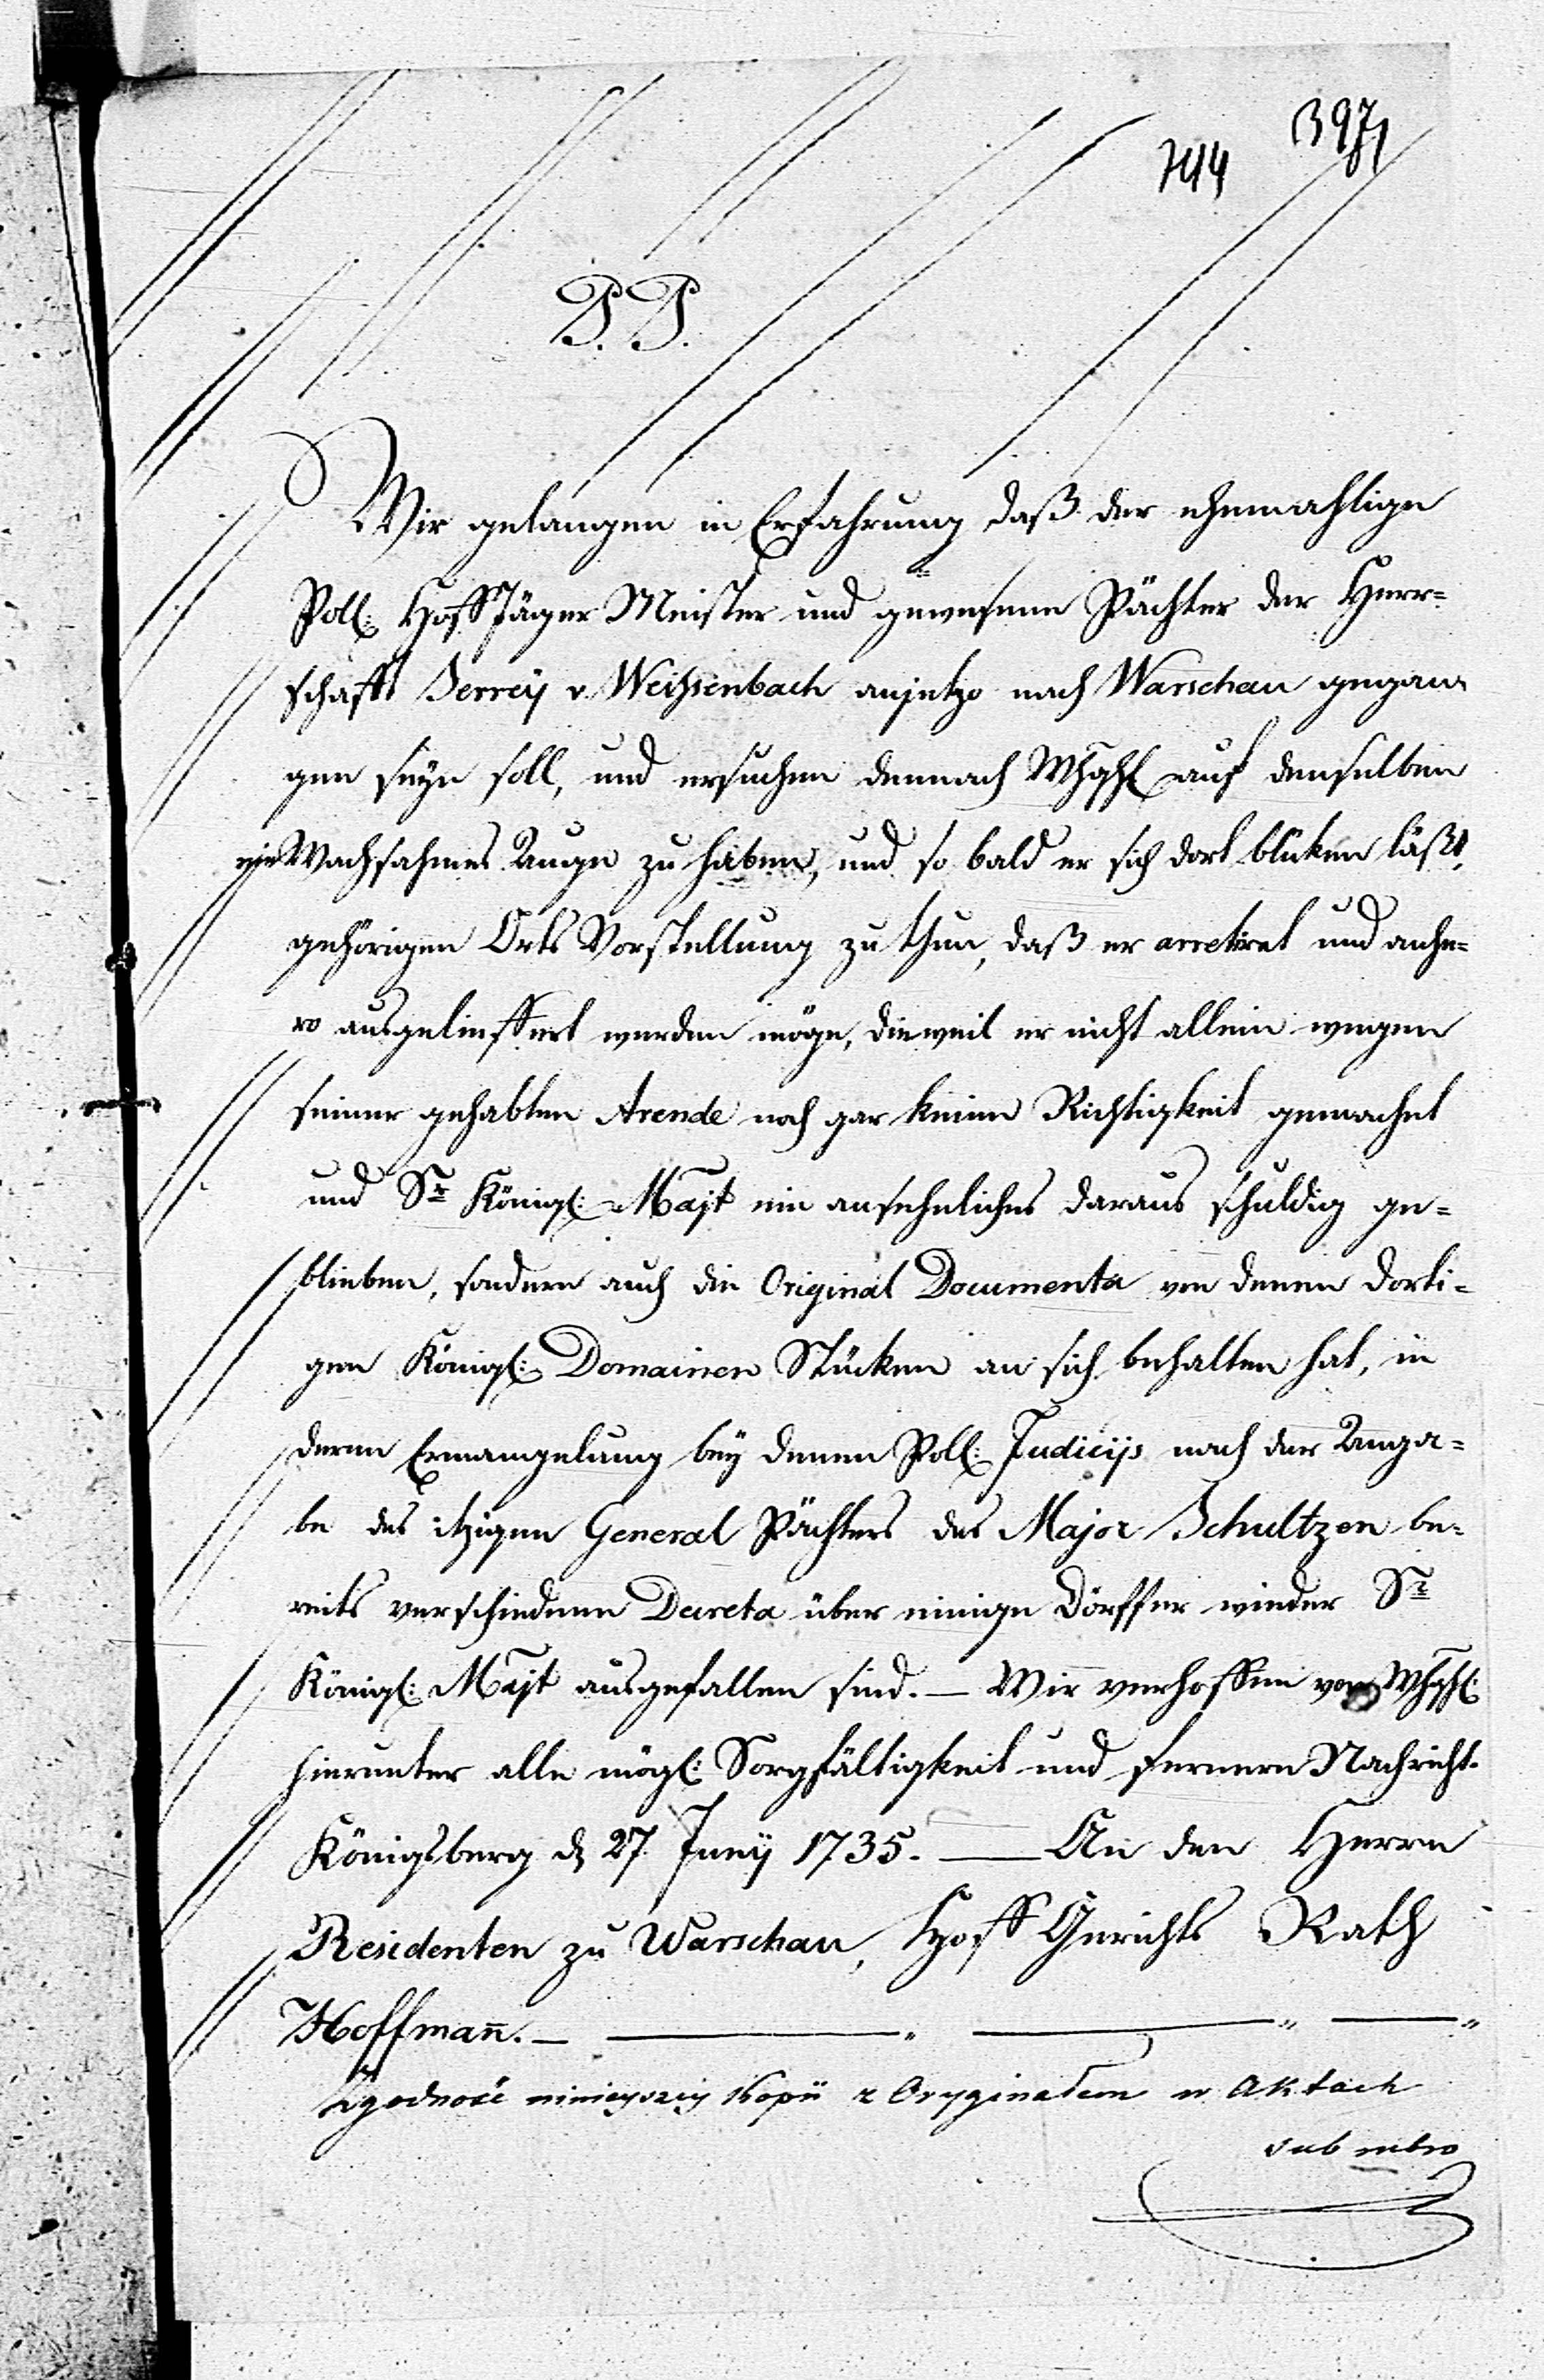 397
744
P. P.
Wir gelangen in Erfahrung daß der ehemahlige
Poll: Hoff Jäger Meister und gewesene Pächter der Herr=
schafft Serrey v. Weissenbach anjetzo nach Warschau gegan
gen seyn soll, und ersuchen demnach auf denselben
ein Wachsahmes Auge zu haben, und so bald er sich dort blicken läßt,
gehörigen Orts Vorstellung zu thun, daß er arretiret und anhe=
ro ausgelieffert werden möge, dieweil er nicht allein wegen
seiner gehabten Arende noch gar keine Richtigkeit gemachet
und Sr Königl: Majt ein ansehnliches daraus schuldig ge=
blieben, sondern auch die Original Documenta von denen dorti=
gen Königl: Domainen Stücken an sich behalten hat, in
deren Ermangelung bey denen Poll: Judicijs nach der Anga=
be des itzigen General Pächters des Major Schultzen be=
reits verschiedene Decreta über einige Dörffer wieder Sr
Königl: Majt ausgefallen sind. — Wir verhoffen von
hierunter alle mögl: Sorgfältigkeit und fernere Nachricht.
Königsberg d 27. Junij 1735. — An den Herrn
Residenten zu Warschau, Hoff Gerichts Rath
Hoffmañ. —
Zgodność ninieyszey Kopii z Oryginałem w Aktach
sub